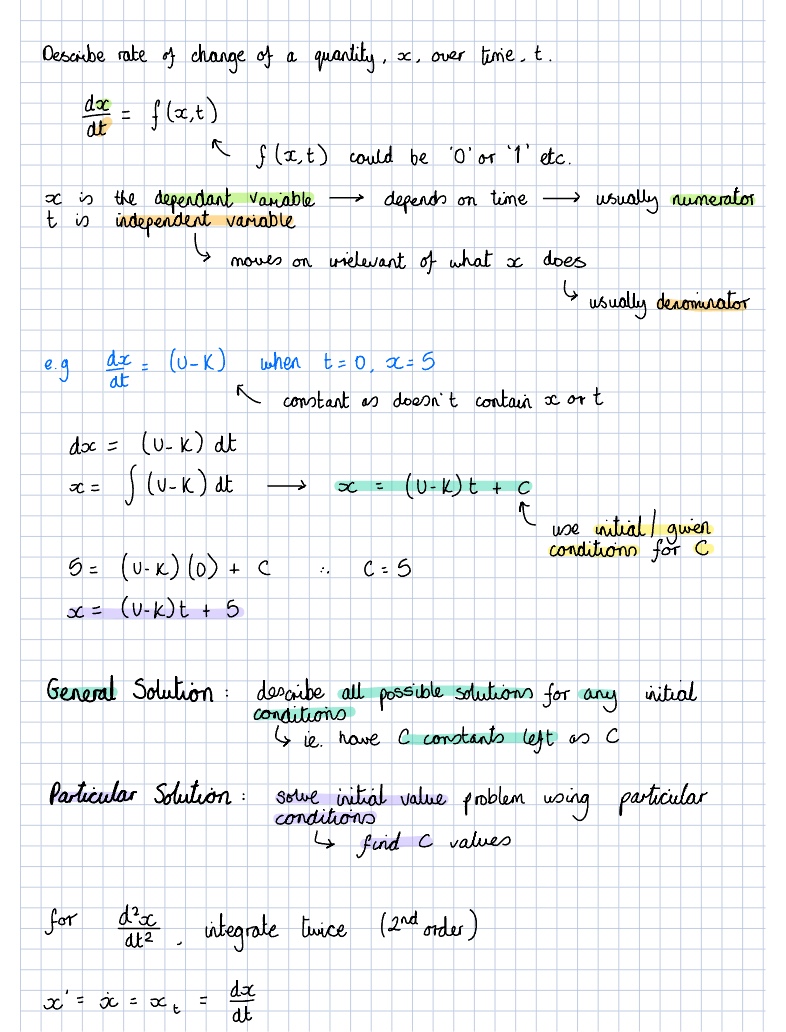 Describe rate of change of a quantity, x, over time, t.
dx/dt = f(x,t)
f(x,t) could be '0' or '1' etc.
x is the dependant variable → depends on time → usually numerator
t is independent variable
↳ moves on irrelevant of what x does
↳ usually denominator
e.g dx/dt = (U-K) when t=0, x=5
constant as doesn't contain x or t
dx = (U-K) dt
x = ∫(U-K) dt → x = (U-K)t + C
use initial/given
conditions for C
5 = (U-K)(0) + C ∴ C=5
x = (U-K)t + 5
General Solution: describe all possible solutions for any initial
conditions
↳ ie. have C constants left as C
Particular Solution: solve initial value problem using particular
conditions
↳ find C values
for d²x/dt², integrate twice (2nd order)
x' = ẋ = xₜ = dx/dt